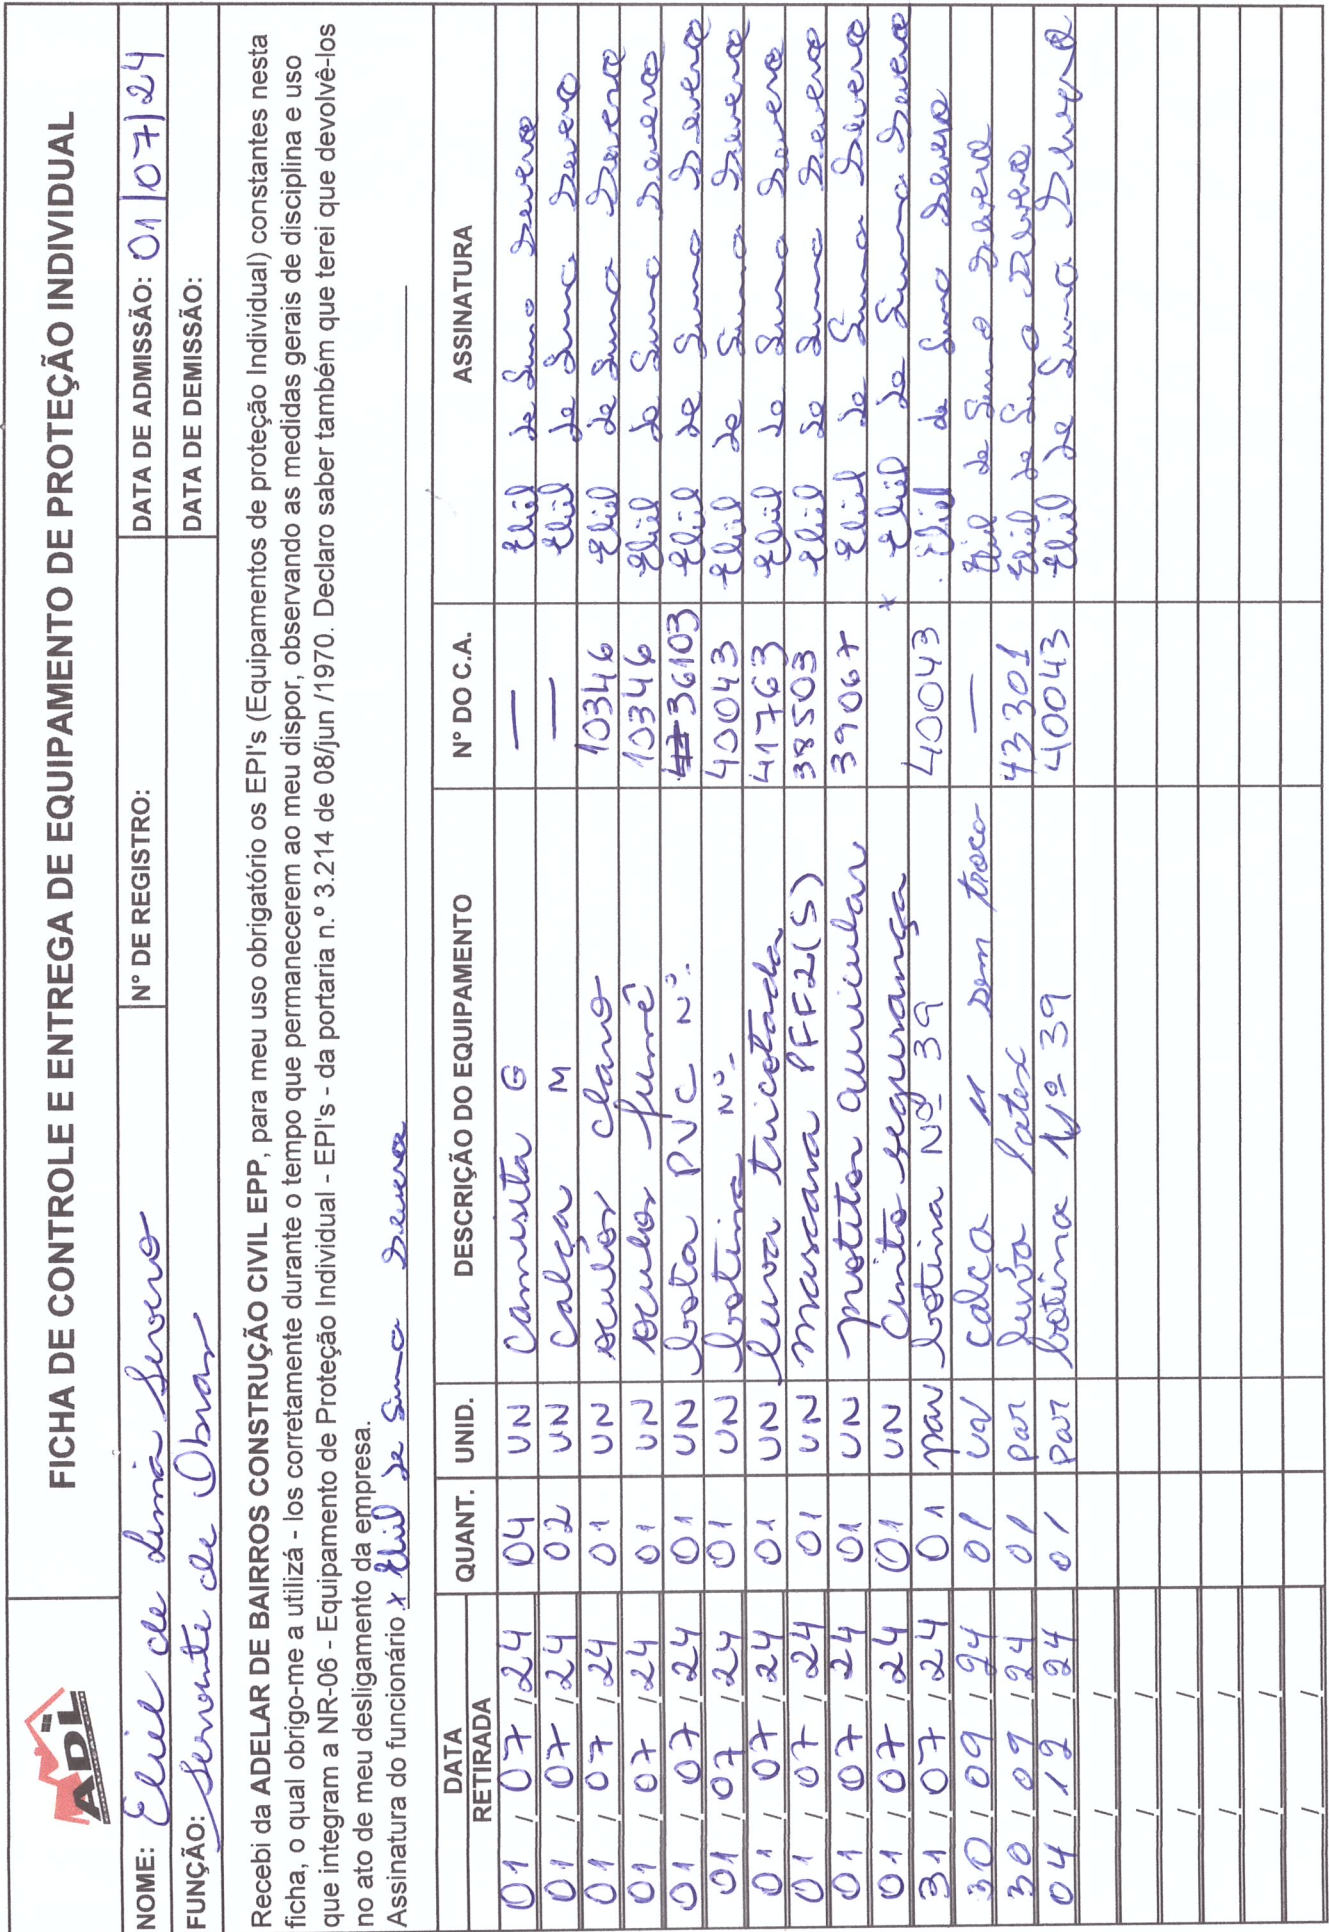 ADL
FICHA DE CONTROLE E ENTREGA DE EQUIPAMENTO DE PROTEÇÃO INDIVIDUAL
NOME: Eliel de Lima Severo N° DE REGISTRO: DATA DE ADMISSÃO: 01/07/24
FUNÇÃO: Servente de Obras DATA DE DEMISSÃO:
Recebi da ADELAR DE BAIRROS CONSTRUÇÃO CIVIL EPP, para meu uso obrigatório os EPI's (Equipamentos de proteção Individual) constantes nesta
ficha, o qual obrigo-me a utilizá - los corretamente durante o tempo que permanecerem ao meu dispor, observando as medidas gerais de disciplina e uso
que integram a NR-06 - Equipamento de Proteção Individual - EPI's - da portaria n.º 3.214 de 08/jun /1970. Declaro saber também que terei que devolvê-los
no ato de meu desligamento da empresa.
Assinatura do funcionário x Eliel de Lima Severo
DATA RETIRADA QUANT. UNID. DESCRIÇÃO DO EQUIPAMENTO N° DO C.A. ASSINATURA
01/07/24 04 UN Camiseta G — Eliel de Lima Severo
01/07/24 02 UN Calça M — Eliel de Lima Severo
01/07/24 01 UN oculos claro 10346 Eliel de Lima Severo
01/07/24 01 UN oculos fumê 10346 Eliel de Lima Severo
01/07/24 01 UN bota PVC Nº. 36103 Eliel de Lima Severo
01/07/24 01 UN botina Nº- 40043 Eliel de Lima Severo
01/07/24 01 UN luva tricotada 41763 Eliel de Lima Severo
01/07/24 01 UN mascara PFF2(S) 38503 Eliel de Lima Severo
01/07/24 01 UN protetor auricular 39067 Eliel de Lima Severo
01/07/24 01 UN Cinto segurança x Eliel de Lima Severo
31/07/24 01 par botina Nº 39 40043 Eliel de Lima Severo
30/09/24 01 un calca M sem troca — Eliel de Lima Severo
30/09/24 01 par luva latex 43301 Eliel de Lima Severo
04/12/24 01 par botina Nº 39 40043 Eliel de Lima Severo